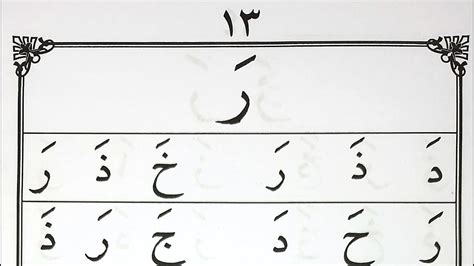 ١٣
رَ
دَ ذَ رَ خَ ذَ رَ
رَ حَ دَ جَ رَ ذَ